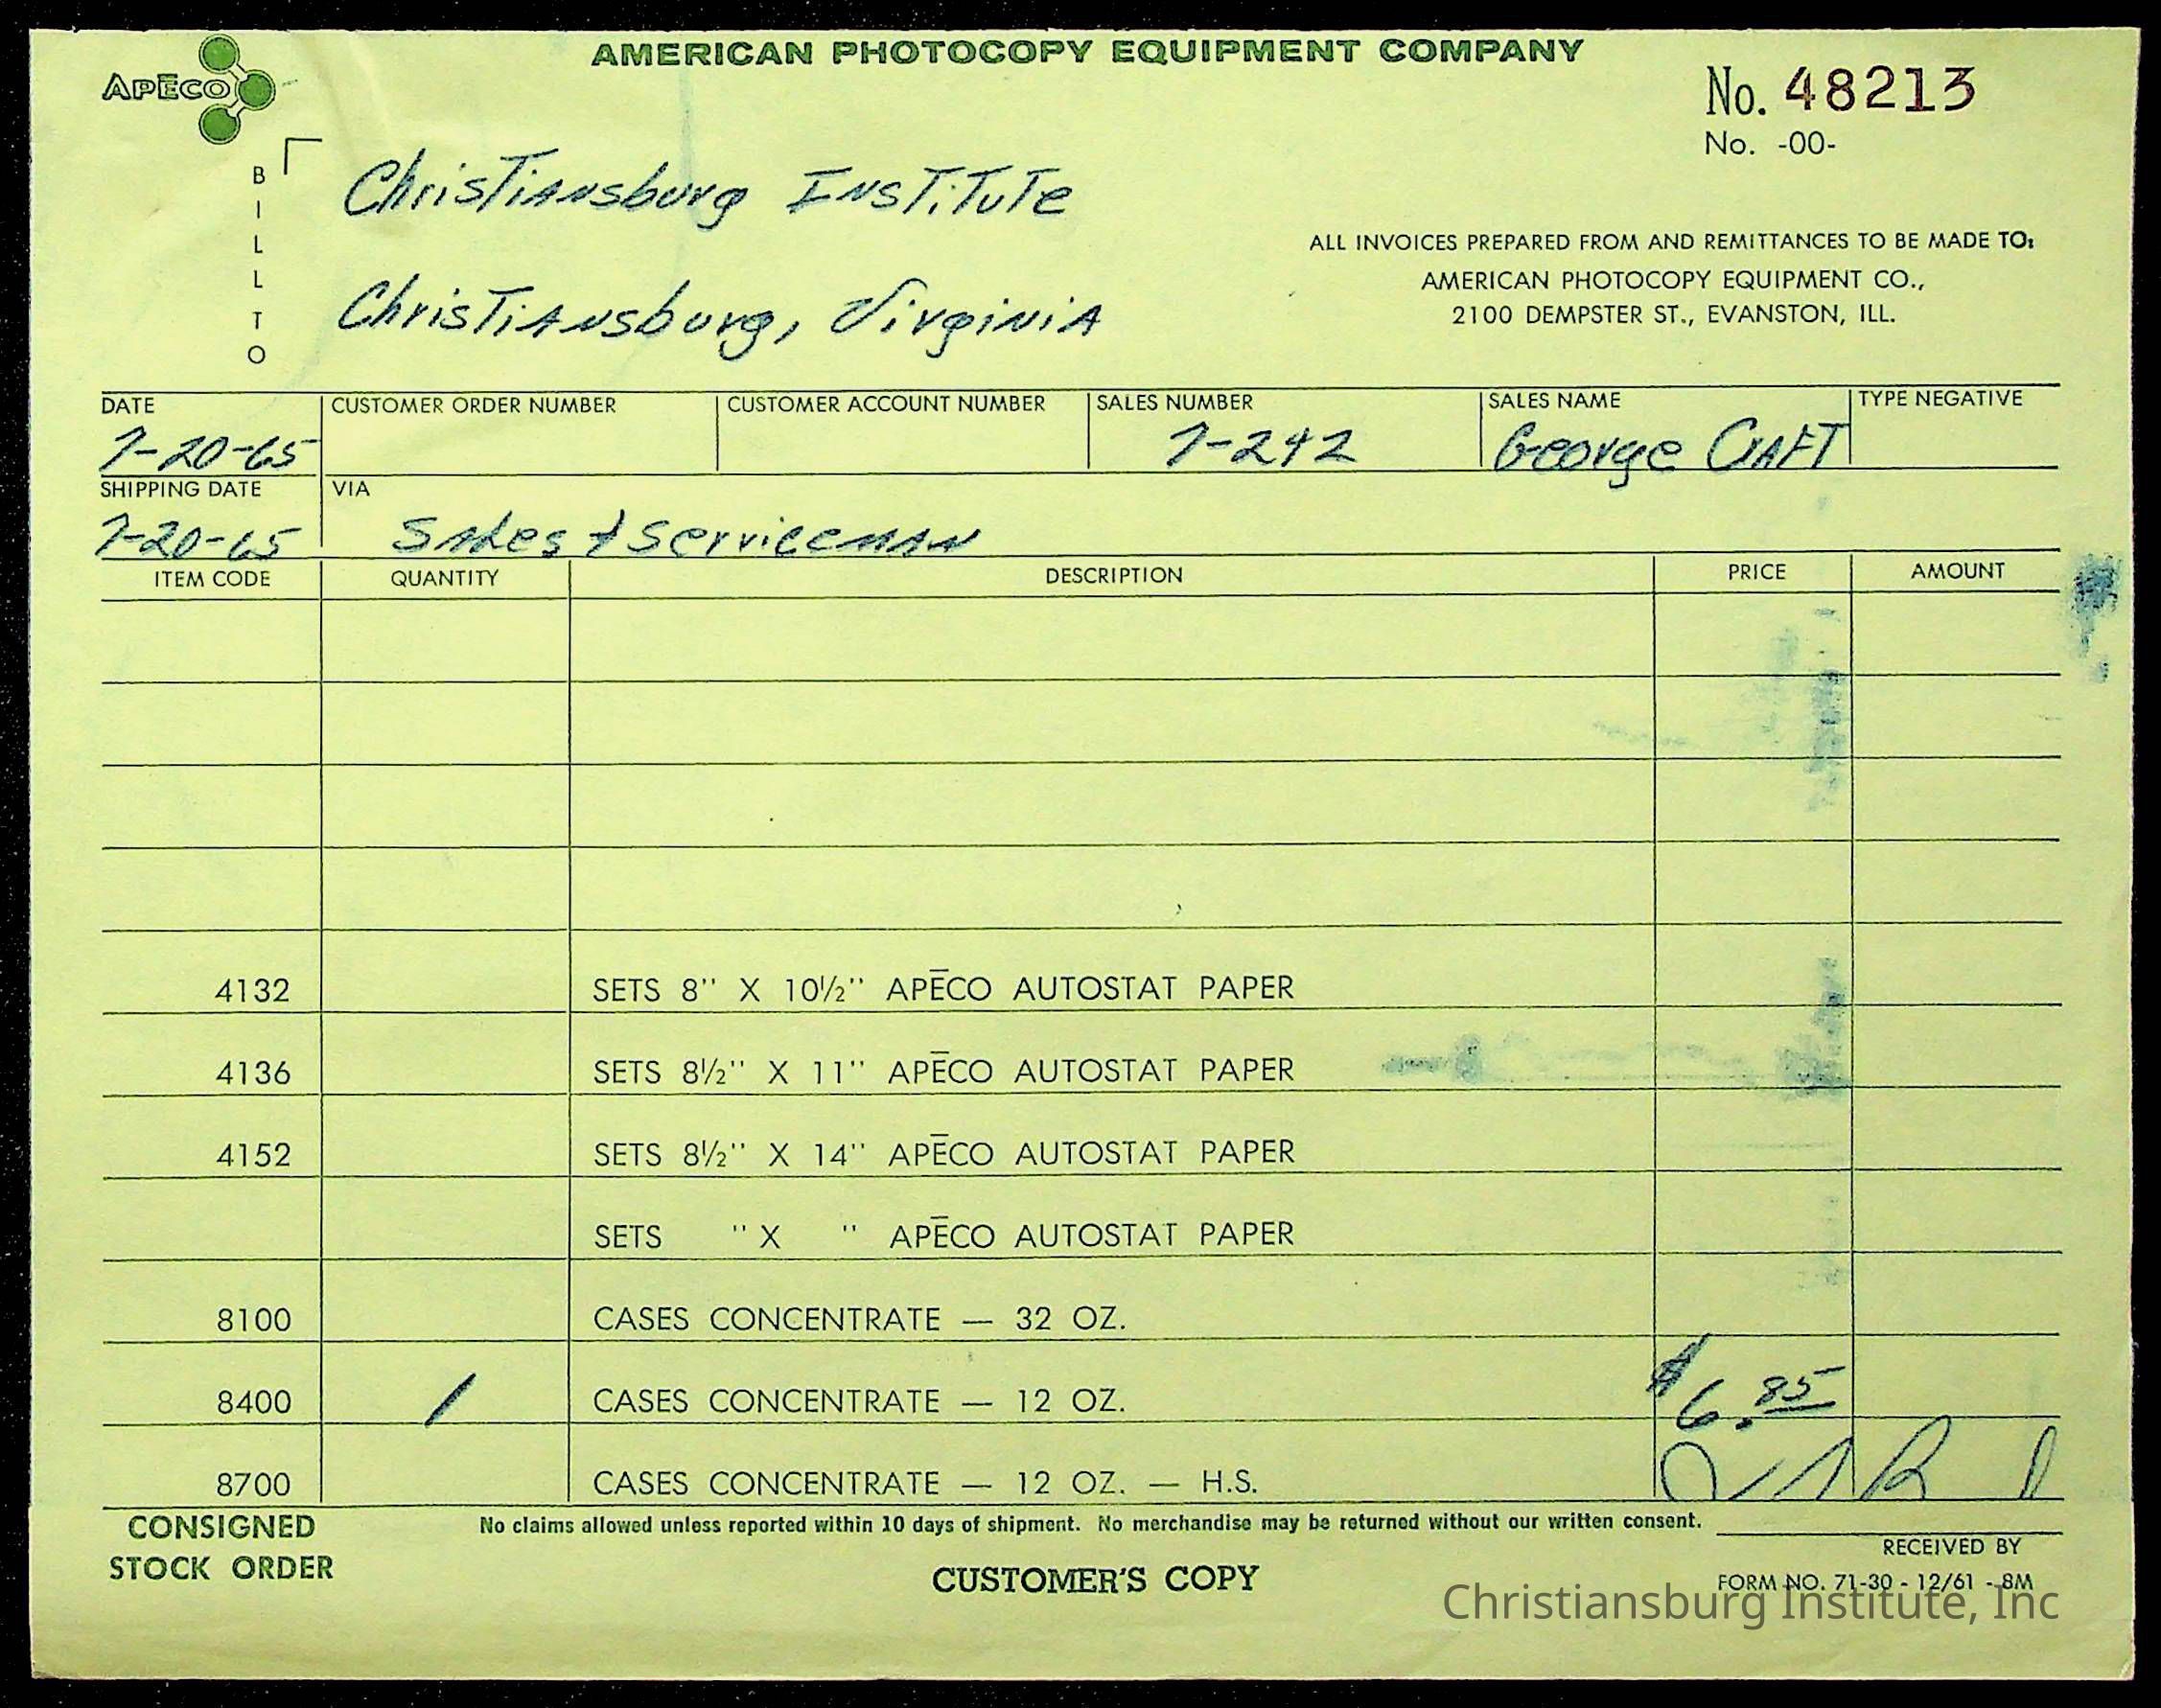 AMERICAN PHOTOCOPY EQUIPMENT COMPANY
APĒCO
No. 48213
No. -00-
BILL TO
Christiansburg Institute
Christiansburg, Virginia
ALL INVOICES PREPARED FROM AND REMITTANCES TO BE MADE TO:
AMERICAN PHOTOCOPY EQUIPMENT CO.,
2100 DEMPSTER ST., EVANSTON, ILL.
DATE CUSTOMER ORDER NUMBER CUSTOMER ACCOUNT NUMBER SALES NUMBER SALES NAME TYPE NEGATIVE
7-20-65 7-242 George
SHIPPING DATE VIA
7-20-65 Sales & Serviceman
ITEM CODE QUANTITY DESCRIPTION PRICE AMOUNT
4132 SETS 8" X 10½" APĒCO AUTOSTAT PAPER
4136 SETS 8½" X 11" APĒCO AUTOSTAT PAPER
4152 SETS 8½" X 14" APĒCO AUTOSTAT PAPER
SETS " X " APĒCO AUTOSTAT PAPER
8100 CASES CONCENTRATE — 32 OZ.
8400 1 CASES CONCENTRATE — 12 OZ. $6.85
8700 CASES CONCENTRATE — 12 OZ. — H.S.
CONSIGNED
STOCK ORDER
No claims allowed unless reported within 10 days of shipment. No merchandise may be returned without our written consent.
RECEIVED BY
CUSTOMER'S COPY
FORM NO. 71-30 - 12/61 - 8M
Christiansburg Institute, Inc